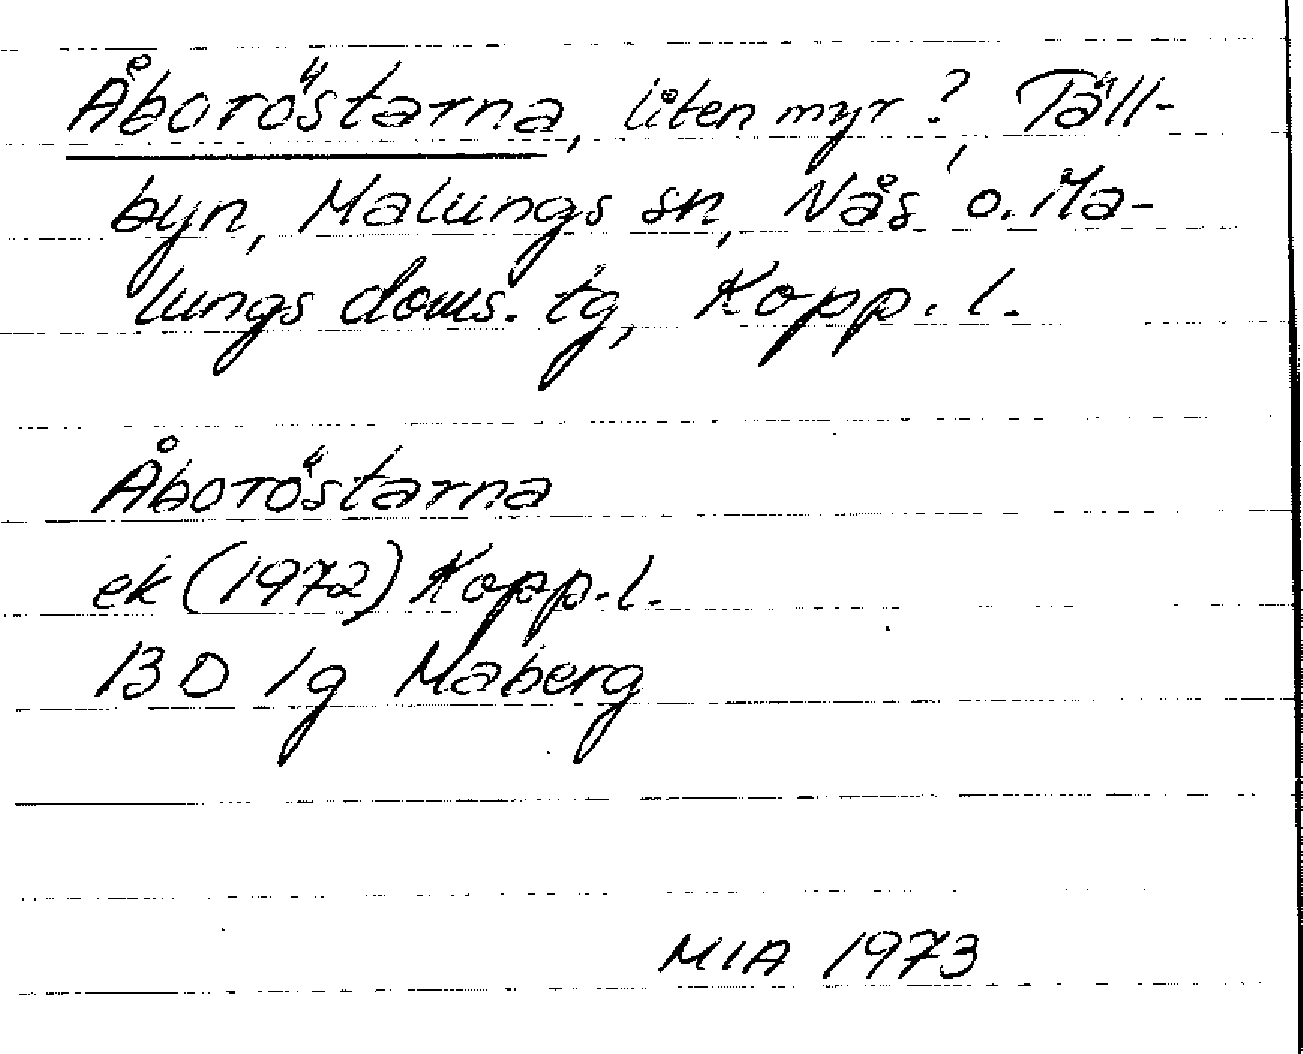 Åboröstarna, liten myr?, Täll-
byn, Malungs sn, Nås o. Ma-
lungs doms. tg, Kopp. l.
Åboröstarna
ek (1972) Kopp. l.
13 D 1g Maberg
MIA 1973